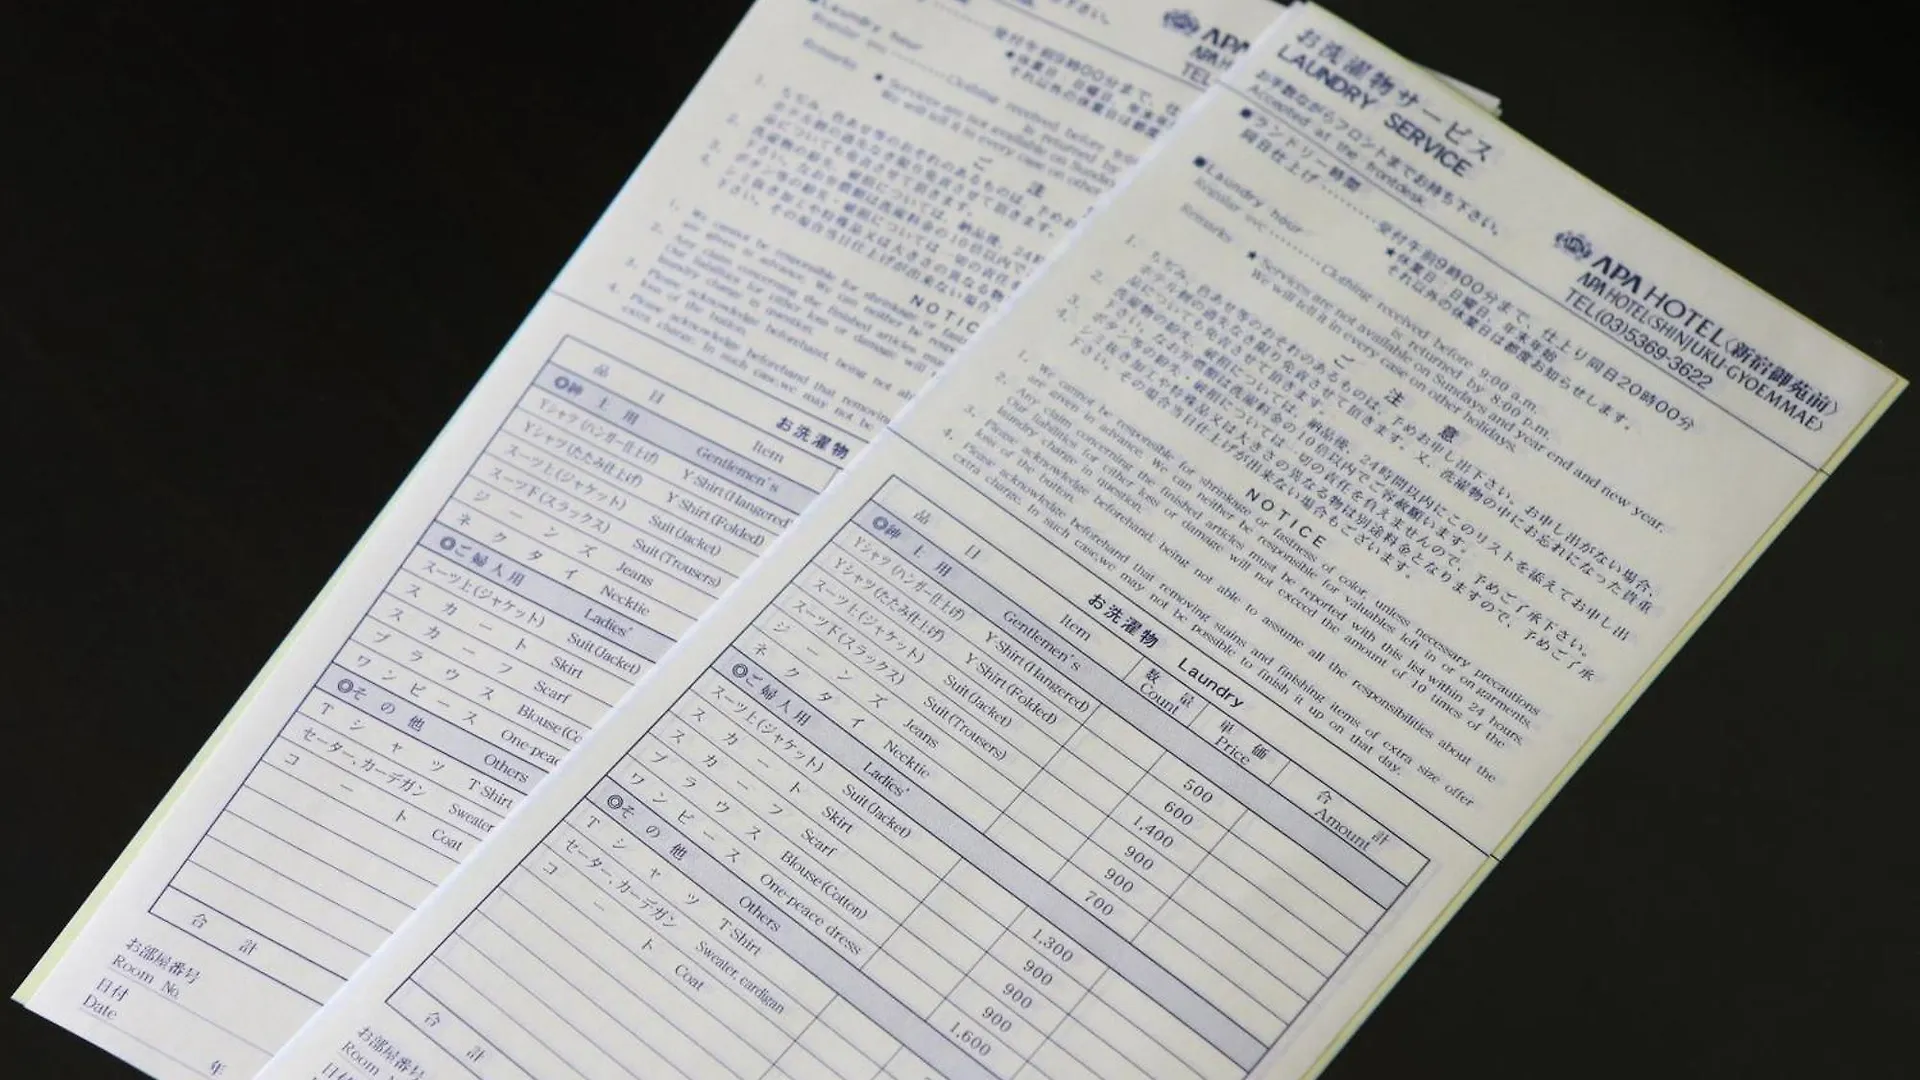 お洗濯物サービス
LAUNDRY SERVICE
お手数ながらフロントまでお持ち下さい。
Accepted at the frontdesk.
APA HOTEL〈新宿御苑前〉
APA HOTEL〈SHINJUKU-GYOEMMAE〉
TEL(03)5369-3622
■ランドリー時間
同日仕上げ……………受付午前9時00分まで、仕上り同日20時00分
★休業日：日曜日、年末年始
それ以外の休業日は都度お知らせします。
■Laundry hour
Regular svc…………Clothing received before 9:00 a.m.
is returned by 8:00 p.m.
Remarks ★Services are not available on Sundays and year end and new year.
We will tell it in every case on other holidays.
ご注意
1. ちぢみ、色あせ等のおそれのあるものは、予めお申し出下さい。お申し出がない場合、
ホテル側の過失なき限り免責させて頂きます。又、洗濯物の中にお忘れになった貴重
品についても免責させて頂きます。
2. 洗濯物の紛失・破損については、納品後、24時間以内にこのリストを添えてお申し出
下さい。なお弁償額は洗濯料金の10倍以内でご容赦願います。
3. ボタン等の紛失・破損については一切の責任を負えませんので、予めご了承下さい。
4. シミ抜き加工や特殊品又は大きさの異なる物は別途料金となりますので、予めご了承
下さい。その場合当日仕上げが出来ない場合もございます。
NOTICE
1. We cannot be responsible for shrinkage or fastness of color, unless necessary precautions
are given in advance. We can neither be responsible for valuables left in or on garments.
2. Any claim concerning the finished articles must be reported with this list within 24 hours.
Our liabilities for either loss or damage will not exceed the amount of 10 times of the
laundry charge in question.
3. Please acknowledge beforehand, being not able to assume all the responsibilities about the
loss of the button.
4. Please acknowledge beforehand that removing stains and finishing items of extra size offer
extra charge. In such case,we may not be possible to finish it up on that day.
お洗濯物 Laundry
品目 Item 数量 Count 単価 Price 合計 Amount
◎紳士用 Gentlemen's
Yシャツ(ハンガー仕上げ) Y-Shirt(Hangered) 500
Yシャツ(たたみ仕上げ) Y-Shirt(Folded) 600
スーツ上(ジャケット) Suit(Jacket) 1,400
スーツ下(スラックス) Suit(Trousers) 900
ジーンズ Jeans 900
ネクタイ Necktie 700
◎ご婦人用 Ladies'
スーツ上(ジャケット) Suit(Jacket) 1,300
スカート Skirt 900
スカーフ Scarf 900
ブラウス Blouse(Cotton) 900
ワンピース One-peace dress 1,600
◎その他 Others
Tシャツ T-Shirt
セーター、カーデガン Sweater, cardigan
コート Coat
合計
お部屋番号
Room No.
日付
Date
年